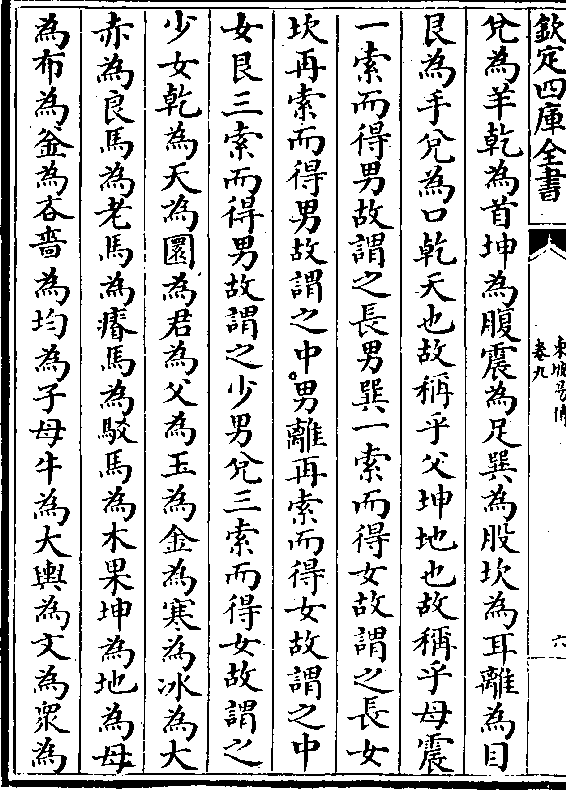 欽定四庫全書
東坡易傳
卷九
六
兌為羊乾為首坤為腹震為足巽為股坎為耳離為目
艮為手兌為口乾天也故稱乎父坤地也故稱乎母震
一索而得男故謂之長男巽一索而得女故謂之長女
坎再索而得男故謂之中男離再索而得女故謂之中
女艮三索而得男故謂之少男兌三索而得女故謂之
少女乾為天為圜為君為父為玉為金為寒為冰為大
赤為良馬為老馬為瘠馬為駁馬為木果坤為地為母
為布為釡為吝嗇為均為子母牛為大輿為文為衆為